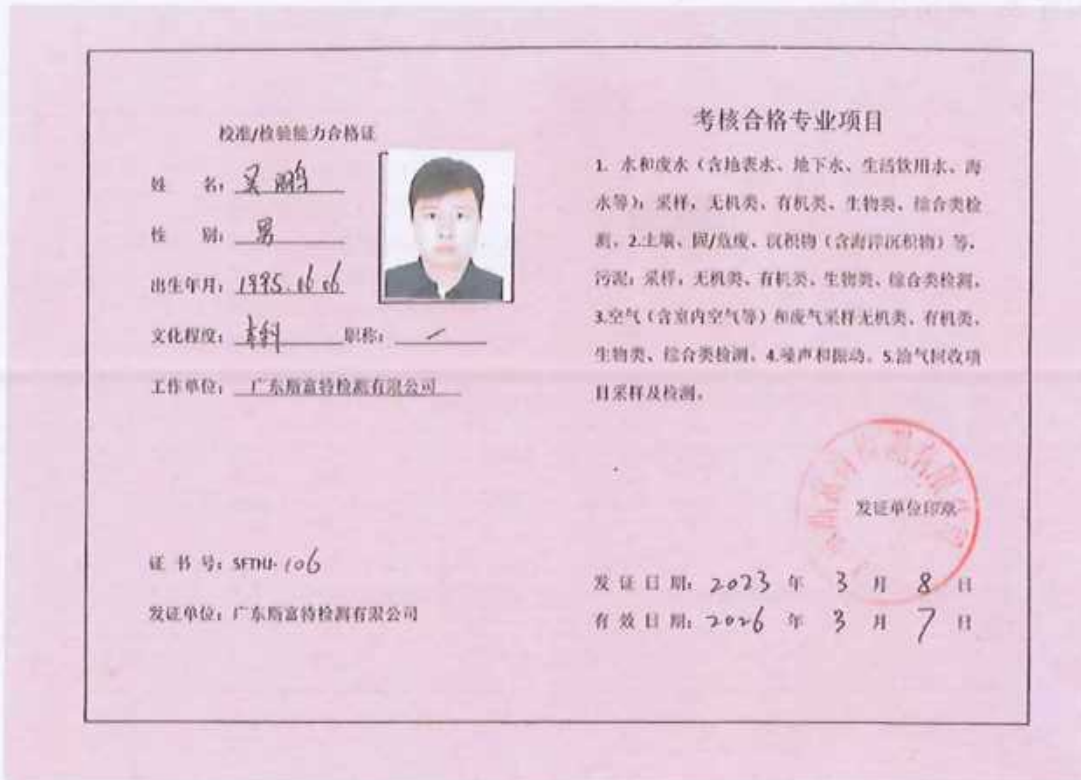 校准/检验能力合格证
姓 名：吴鹏
性 别：男
出生年月：1995.06.06
文化程度：本科 职称：／
工作单位：广东斯富特检测有限公司
证 书 号：SFTHJ-106
发证单位：广东斯富特检测有限公司
考核合格专业项目
1. 水和废水（含地表水、地下水、生活饮用水、海
水等）：采样，无机类、有机类、生物类、综合类检
测。2.土壤、固/危废、沉积物（含海洋沉积物）等，
污泥：采样，无机类、有机类、生物类、综合类检测。
3.空气（含室内空气等）和废气采样无机类、有机类、
生物类、综合类检测。4.噪声和振动。5.油气回收项
目采样及检测。
发证单位印章
发 证 日 期：2023 年 3 月 8 日
有 效 日 期：2026 年 3 月 7 日